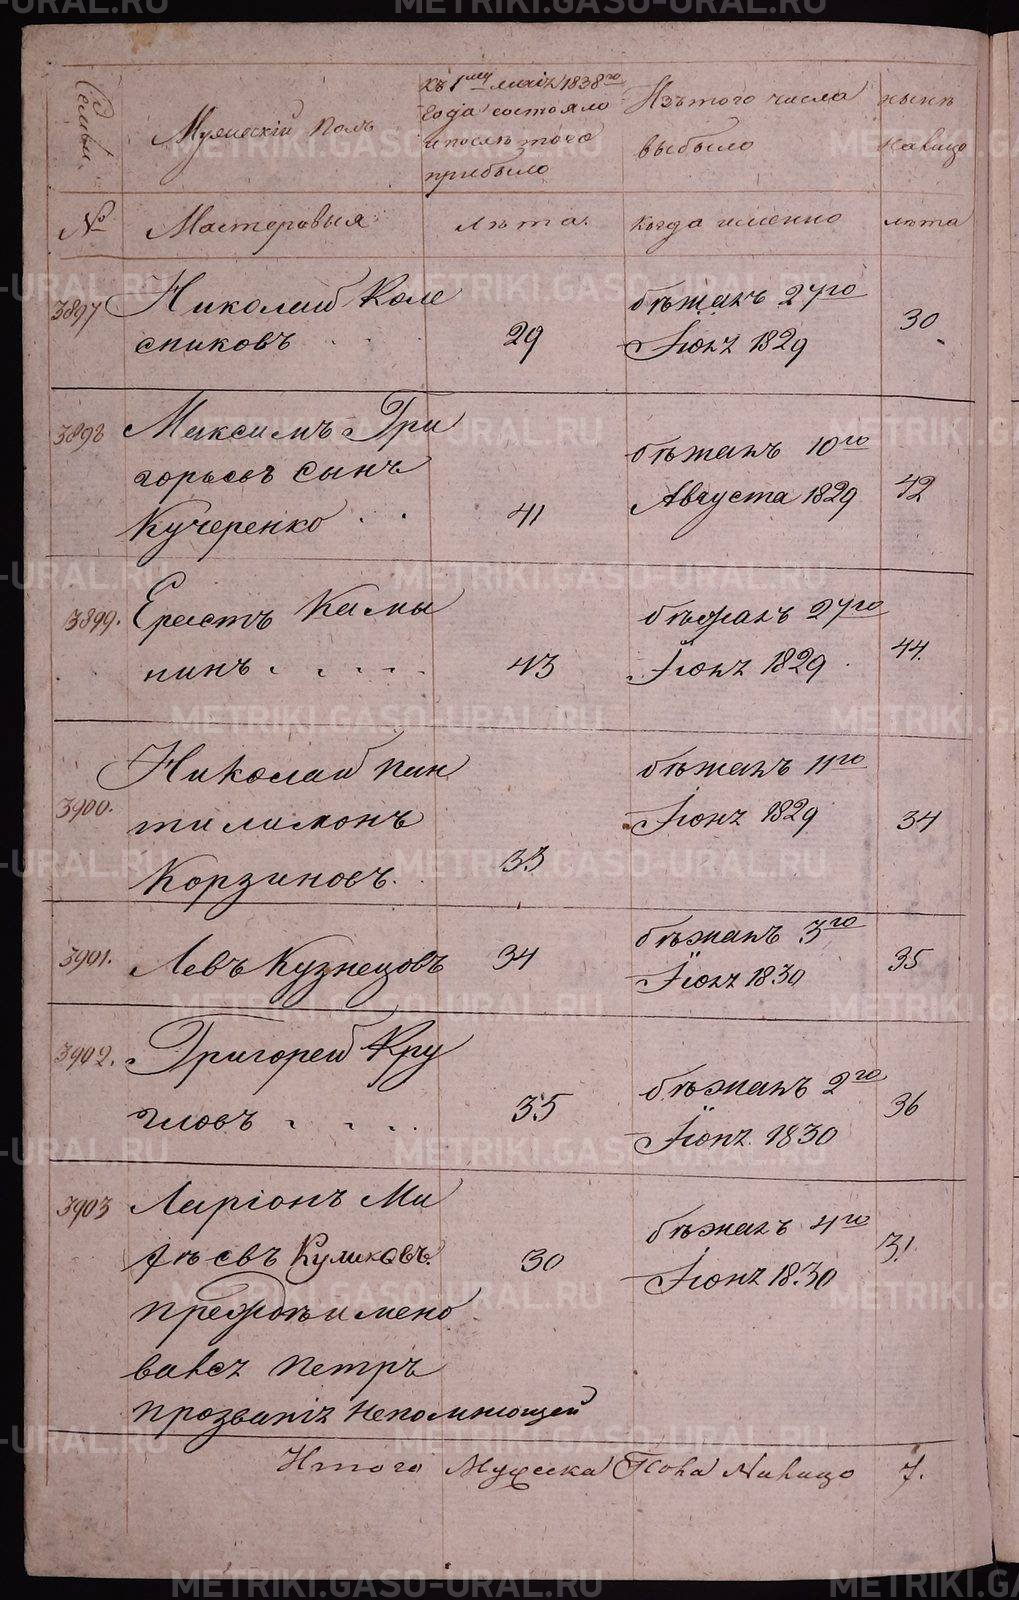 METRIKI.GASO-URAL.RU
Семьи.
Мужескій полъ
къ 1му маія 1838го
года состояло
и послѣ того
прибыло
Изъ того числа
выбыло
нынѣ
налицо
№
Мастеровыя
лѣта.
когда именно
лѣта
3897
Николай Коле
сниковъ . .
29
бѣжалъ 27го
Іюля 1829
30
3898
Максимъ Гри
горьевъ сынъ
Кучеренко . .
41
бѣжалъ 10го
Августа 1829
42
3899.
Ерастъ Камы
нинъ . . . . .
43
бѣжалъ 27го
Іюля 1829
44.
3900.
Николай пан
тилимонъ
Корзиновъ.
33
бѣжалъ 11го
Іюня 1829
34
3901.
Левъ Кузнецовъ
34
бѣжалъ 3го
Іюля 1830
35
3902.
Григорей Кру
гловъ . . . .
35
бѣжалъ 2го
Іюня 1830
36
3903
Ларіонъ Ма
фѣевъ Куликовъ.
прежде именo
вался Петръ
прозваніе непомнющей
30
бѣжалъ 4го
Іюня 1830
31.
Итого Мужеска Пола Налицо 7.